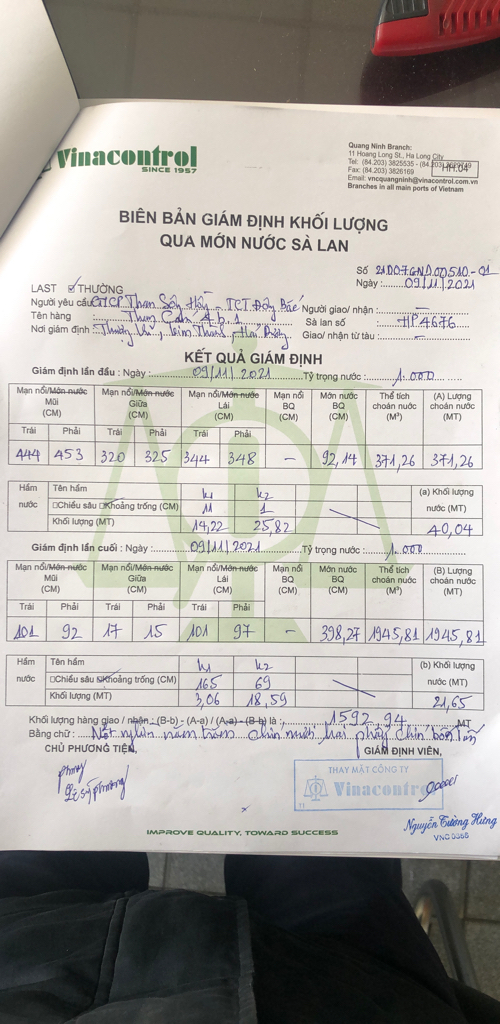 Vinacontrol
SINCE 1957
Quang Ninh Branch:
11 Hoang Long St., Ha Long City
Tel: (84.203) 3825535 - (84.203)
Fax: (84.203) 3826169
HH.04
Email: vncquangninh@vinacontrol.com.vn
Branches in all main ports of Vietnam
BIÊN BẢN GIÁM ĐỊNH KHỐI LƯỢNG
QUA MỚN NƯỚC SÀ LAN
Số 21D07GND00510-01
Ngày : 09/11/2021
LAST THƯỜNG
Người yêu cầu CTCP Than Sông Hồng - TCT Đông Bắc Người giao/ nhận : —
Tên hàng Than Cám 4b.1 Sà lan số HP4676
Nơi giám định : Giao/ nhận từ tàu : —
KẾT QUẢ GIÁM ĐỊNH
Giám định lần đầu : Ngày : 09/11/2021 Tỷ trọng nước : 1.000
Mạn nổi/Món nước Mũi (CM) Mạn nổi/Món nước Giữa (CM) Mạn nổi/Món nước Lái (CM) Mạn nổi BQ (CM) Món nước BQ (CM) Thể tích choán nước (M³) (A) Lượng choán nước (MT)
Trái Phải Trái Phải Trái Phải
444 453 320 325 344 348 — 92,14 371,26 371,26
Hầm nước Tên hầm k1 k2 (a) Khối lượng nước (MT)
□Chiều sâu □Khoảng trống (CM) 11 1
Khối lượng (MT) 14,22 25,82 40,04
Giám định lần cuối : Ngày : 09/11/2021 Tỷ trọng nước : 1.000
Mạn nổi/Món nước Mũi (CM) Mạn nổi/Món nước Giữa (CM) Mạn nổi/Món nước Lái (CM) Mạn nổi BQ (CM) Món nước BQ (CM) Thể tích choán nước (M³) (B) Lượng choán nước (MT)
Trái Phải Trái Phải Trái Phải
101 92 17 15 101 97 — 398,27 1945,81 1945,81
Hầm nước Tên hầm k1 k2 (b) Khối lượng nước (MT)
□Chiều sâu □Khoảng trống (CM) 165 69
Khối lượng (MT) 3,06 18,59 21,65
Khối lượng hàng giao / nhận : (B-b) - (A-a) / (A-a) - (B-b) là : 1592,94 MT
Bằng chữ : Một nghìn năm trăm chín mươi hai phẩy chín bốn tấn
CHỦ PHƯƠNG TIỆN, GIÁM ĐỊNH VIÊN,
THAY MẶT CÔNG TY
Vinacontrol
11
Lê Sỹ Phương
Nguyễn Tường Hưng
IMPROVE QUALITY, TOWARD SUCCESS